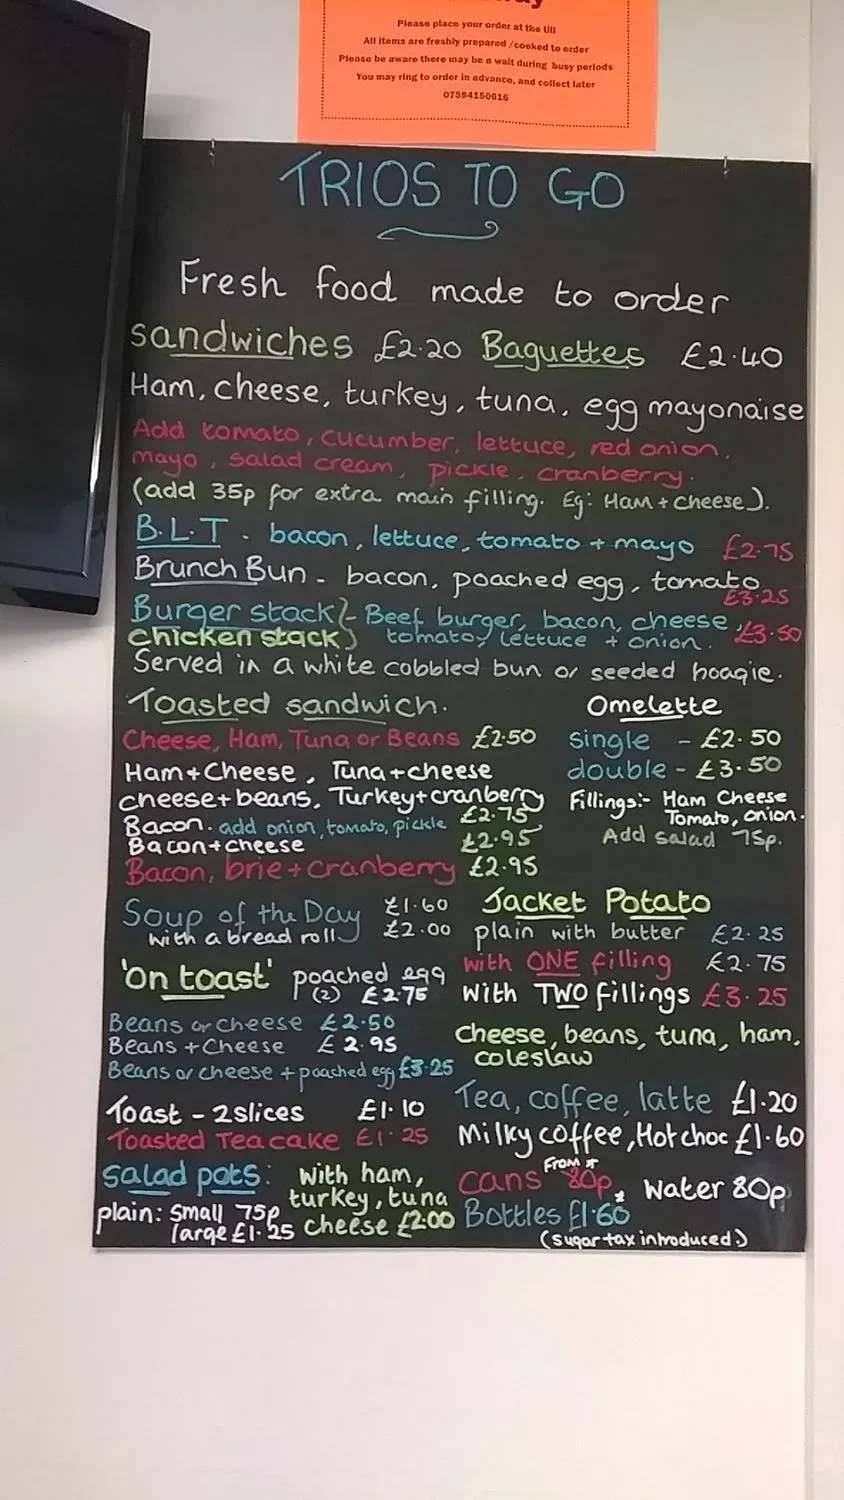 Please place your order at the till
All items are freshly prepared /cooked to order
Please be aware there may be a wait during busy periods
You may ring to order in advance, and collect later
07594150616
TRIOS TO GO
Fresh food made to order
sandwiches £2.20 Baguettes £2.40
Ham, cheese, turkey, tuna, egg mayonaise
Add tomato, cucumber, lettuce, red onion,
mayo, salad cream, pickle, cranberry.
(add 35p for extra main filling. Eg: Ham + cheese).
B.L.T - bacon, lettuce, tomato + mayo £2.75
Brunch Bun - bacon, poached egg, tomato
£3.25
Burger stack }- Beef burger, bacon, cheese,
chicken stack } tomato, lettuce + onion. £3.50
Served in a white cobbled bun or seeded hoagie.
Toasted sandwich.
Cheese, Ham, Tuna or Beans £2.50
Ham+Cheese, Tuna+cheese
cheese+beans, Turkey+cranberry
£2.75
Bacon. add onion, tomato, pickle
Bacon+cheese £2.95
Bacon, brie+cranberry £2.95
Omelette
single - £2.50
double - £3.50
Fillings:- Ham Cheese
Tomato, onion.
Add salad 75p.
Soup of the Day £1.60
with a bread roll £2.00
Jacket Potato
plain with butter £2.25
with ONE filling £2.75
with TWO fillings £3.25
cheese, beans, tuna, ham,
coleslaw
'On toast' poached egg
(2) £2.75
Beans or cheese £2.50
Beans + Cheese £2.95
Beans or cheese + poached egg £3.25
Toast - 2 slices £1.10
Toasted Teacake £1.25
Tea, coffee, latte £1.20
Milky coffee, Hot choc £1.60
Salad pots: with ham,
turkey, tuna
cheese £2.00
plain: small 75p
large £1.25
From *
cans 80p * Water 80p
Bottles £1.60
(sugar tax introduced.)